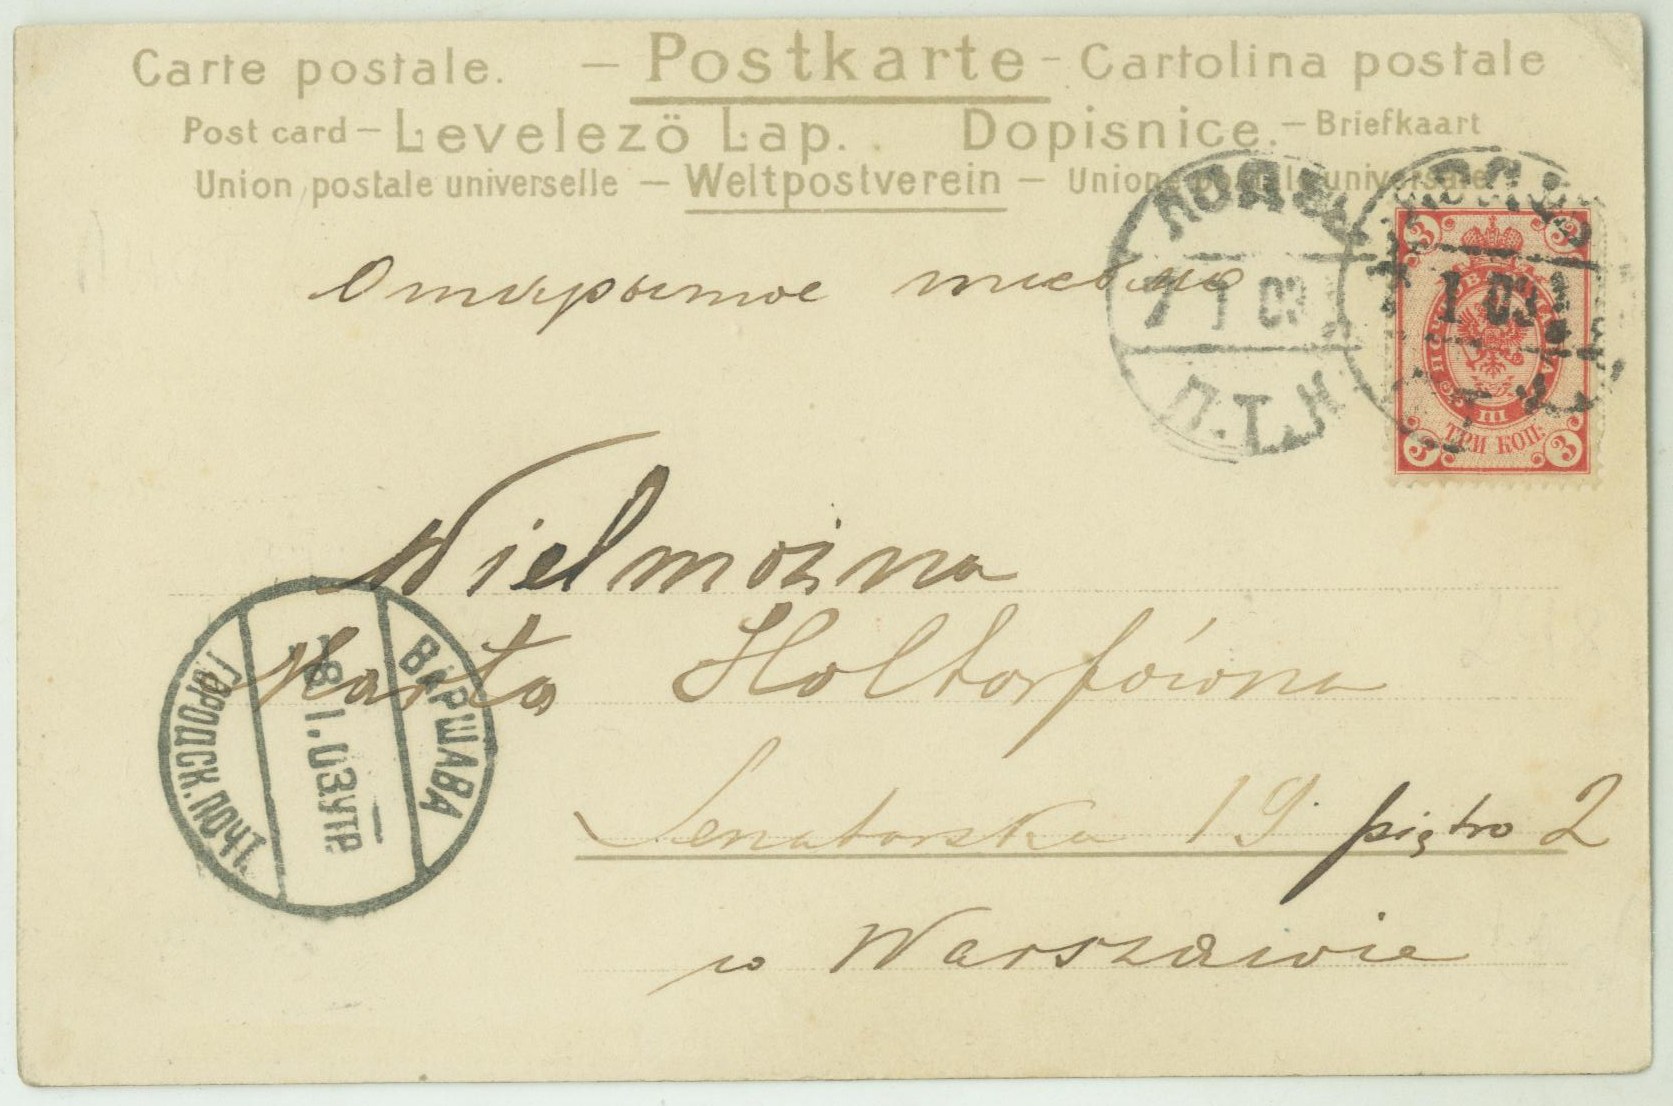 Carte postale. – Postkarte – Cartolina postale
Post card – Levelező Lap. . Dopisnice. – Briefkaart
Union postale universelle – Weltpostverein – Union postale universale
Открытое письмо
ЛОДЗЬ
7 1 03
П.Т.К
ЛОДЗЬ
7 1 03
3 3
ПОЧТОВАЯ МАРКА
III
ТРИ КОП.
3 3
Wielmożna
Marta Holtorfówna
Senatorska 19. piętro 2
w Warszawie
ВАРШАВА
8.I.03 УТР.
ГОРОДСК. ПОЧТ.